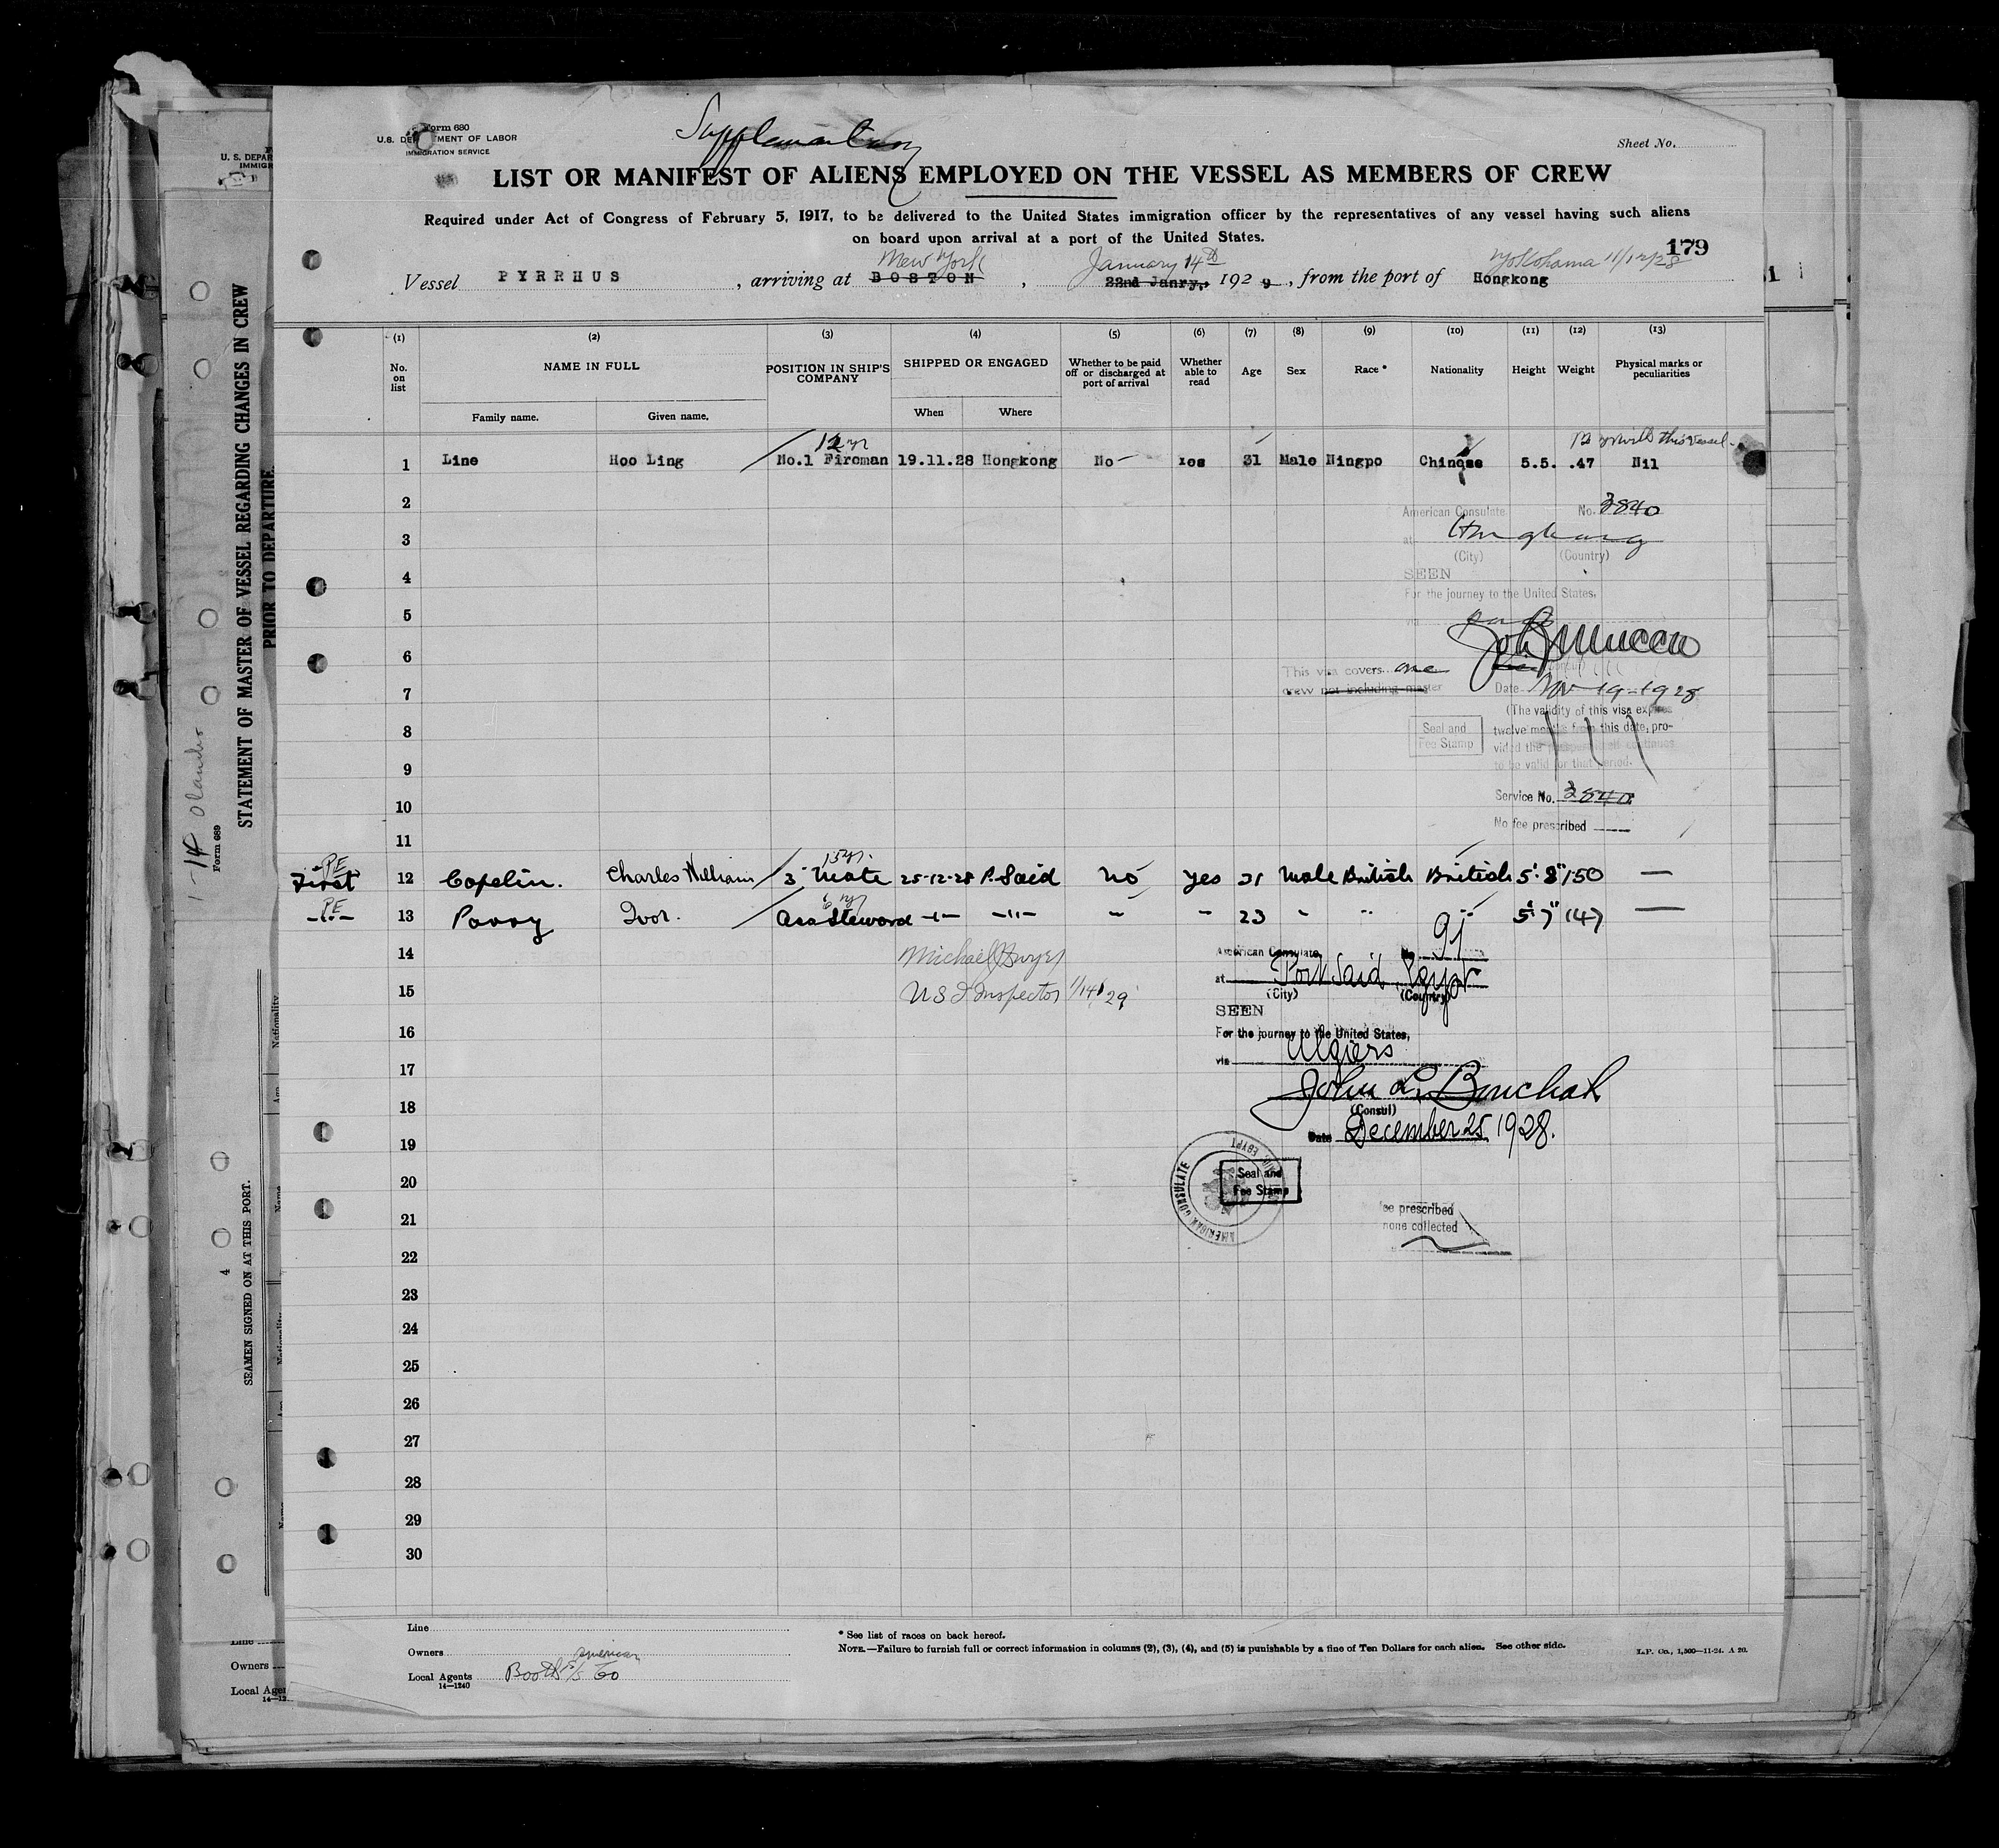 Form 680
U.S. DEPARTMENT OF LABOR
IMMIGRATION SERVICE
Supplementary
Sheet No.
LIST OR MANIFEST OF ALIENS EMPLOYED ON THE VESSEL AS MEMBERS OF CREW
Required under Act of Congress of February 5, 1917, to be delivered to the United States immigration officer by the representatives of any vessel having such aliens
on board upon arrival at a port of the United States.
179
New York January 14th Yokohama 11/12/28
Vessel PYRRHUS, arriving at BOSTON, 22nd Janry, 1929, from the port of Hongkong
(1) (2) (3) (4) (5) (6) (7) (8) (9) (10) (11) (12) (13)
No. on list
NAME IN FULL
Family name. Given name.
POSITION IN SHIP'S COMPANY
SHIPPED OR ENGAGED
When Where
Whether to be paid off or discharged at port of arrival
Whether able to read
Age
Sex
Race *
Nationality
Height
Weight
Physical marks or peculiarities
12 yr 12 yr with this vessel
1 Line Hoo Ling No.1 Fireman 19.11.28 Hongkong No Yes 31 Male Ningpo Chinese 5.5. .47 Nil
2
American Consulate No. 3840
3
at Hongkong
(City) (Country)
4
SEEN
For the journey to the United States,
5
via
6
This visa covers one
7
crew not including master
Date Nov 19-1928
(The validity of this visa expires
8
Seal and
Fee Stamp
twelve months from this date, pro-
vided the passport itself continues
9
to be valid for that period.
10
Service No. 3840
No fee prescribed
11
PE 15 yr.
First 12 Copelin. Charles William 3 Mate 25-12-28 P. Said No Yes 31 Male British British 5' 8" 150 —
PE 6 yr
-"- 13 Ivor. Ass Steward -"- -"- " " 23 " " " 5' 7" 147 —
14 Michael Dwyer
American Consulate, No. 91
15 US I Inspector 1/14/29
at Port Said, Egypt
(City) (Country)
SEEN
16
For the journey to the United States,
via Algiers
17
18
John L.
(Consul)
19
Date December 25 1928.
20
AMERICAN CONSULATE
EGYPT
Seal and
Fee Stamp
21
fee prescribed
none collected
22
23
24
25
26
27
28
29
30
Line
Owners
American
Local Agents Booth S/S Co
14—1240
* See list of races on back hereof.
NOTE.—Failure to furnish full or correct information in columns (2), (3), (4), and (5) is punishable by a fine of Ten Dollars for each alien. See other side.
L.P. Co., 1,500—11-24. A 20.
U. S. DEPAR
IMMIGR
STATEMENT OF MASTER OF VESSEL REGARDING CHANGES IN CREW
PRIOR TO DEPARTURE.
Form 689
1-14 Olander
SEAMEN SIGNED ON AT THIS PORT.
4
Nationality
Age
Name
Nationality
Name
Line
Owners
Local Agen
14—12